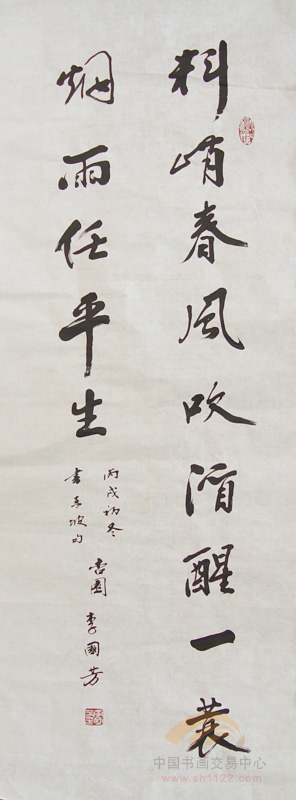 料峭春风吹酒醒一蓑
烟雨任平生
丙戌初冬
书东坡句
李國芳
中国书画交易中心
www.sh1122.com